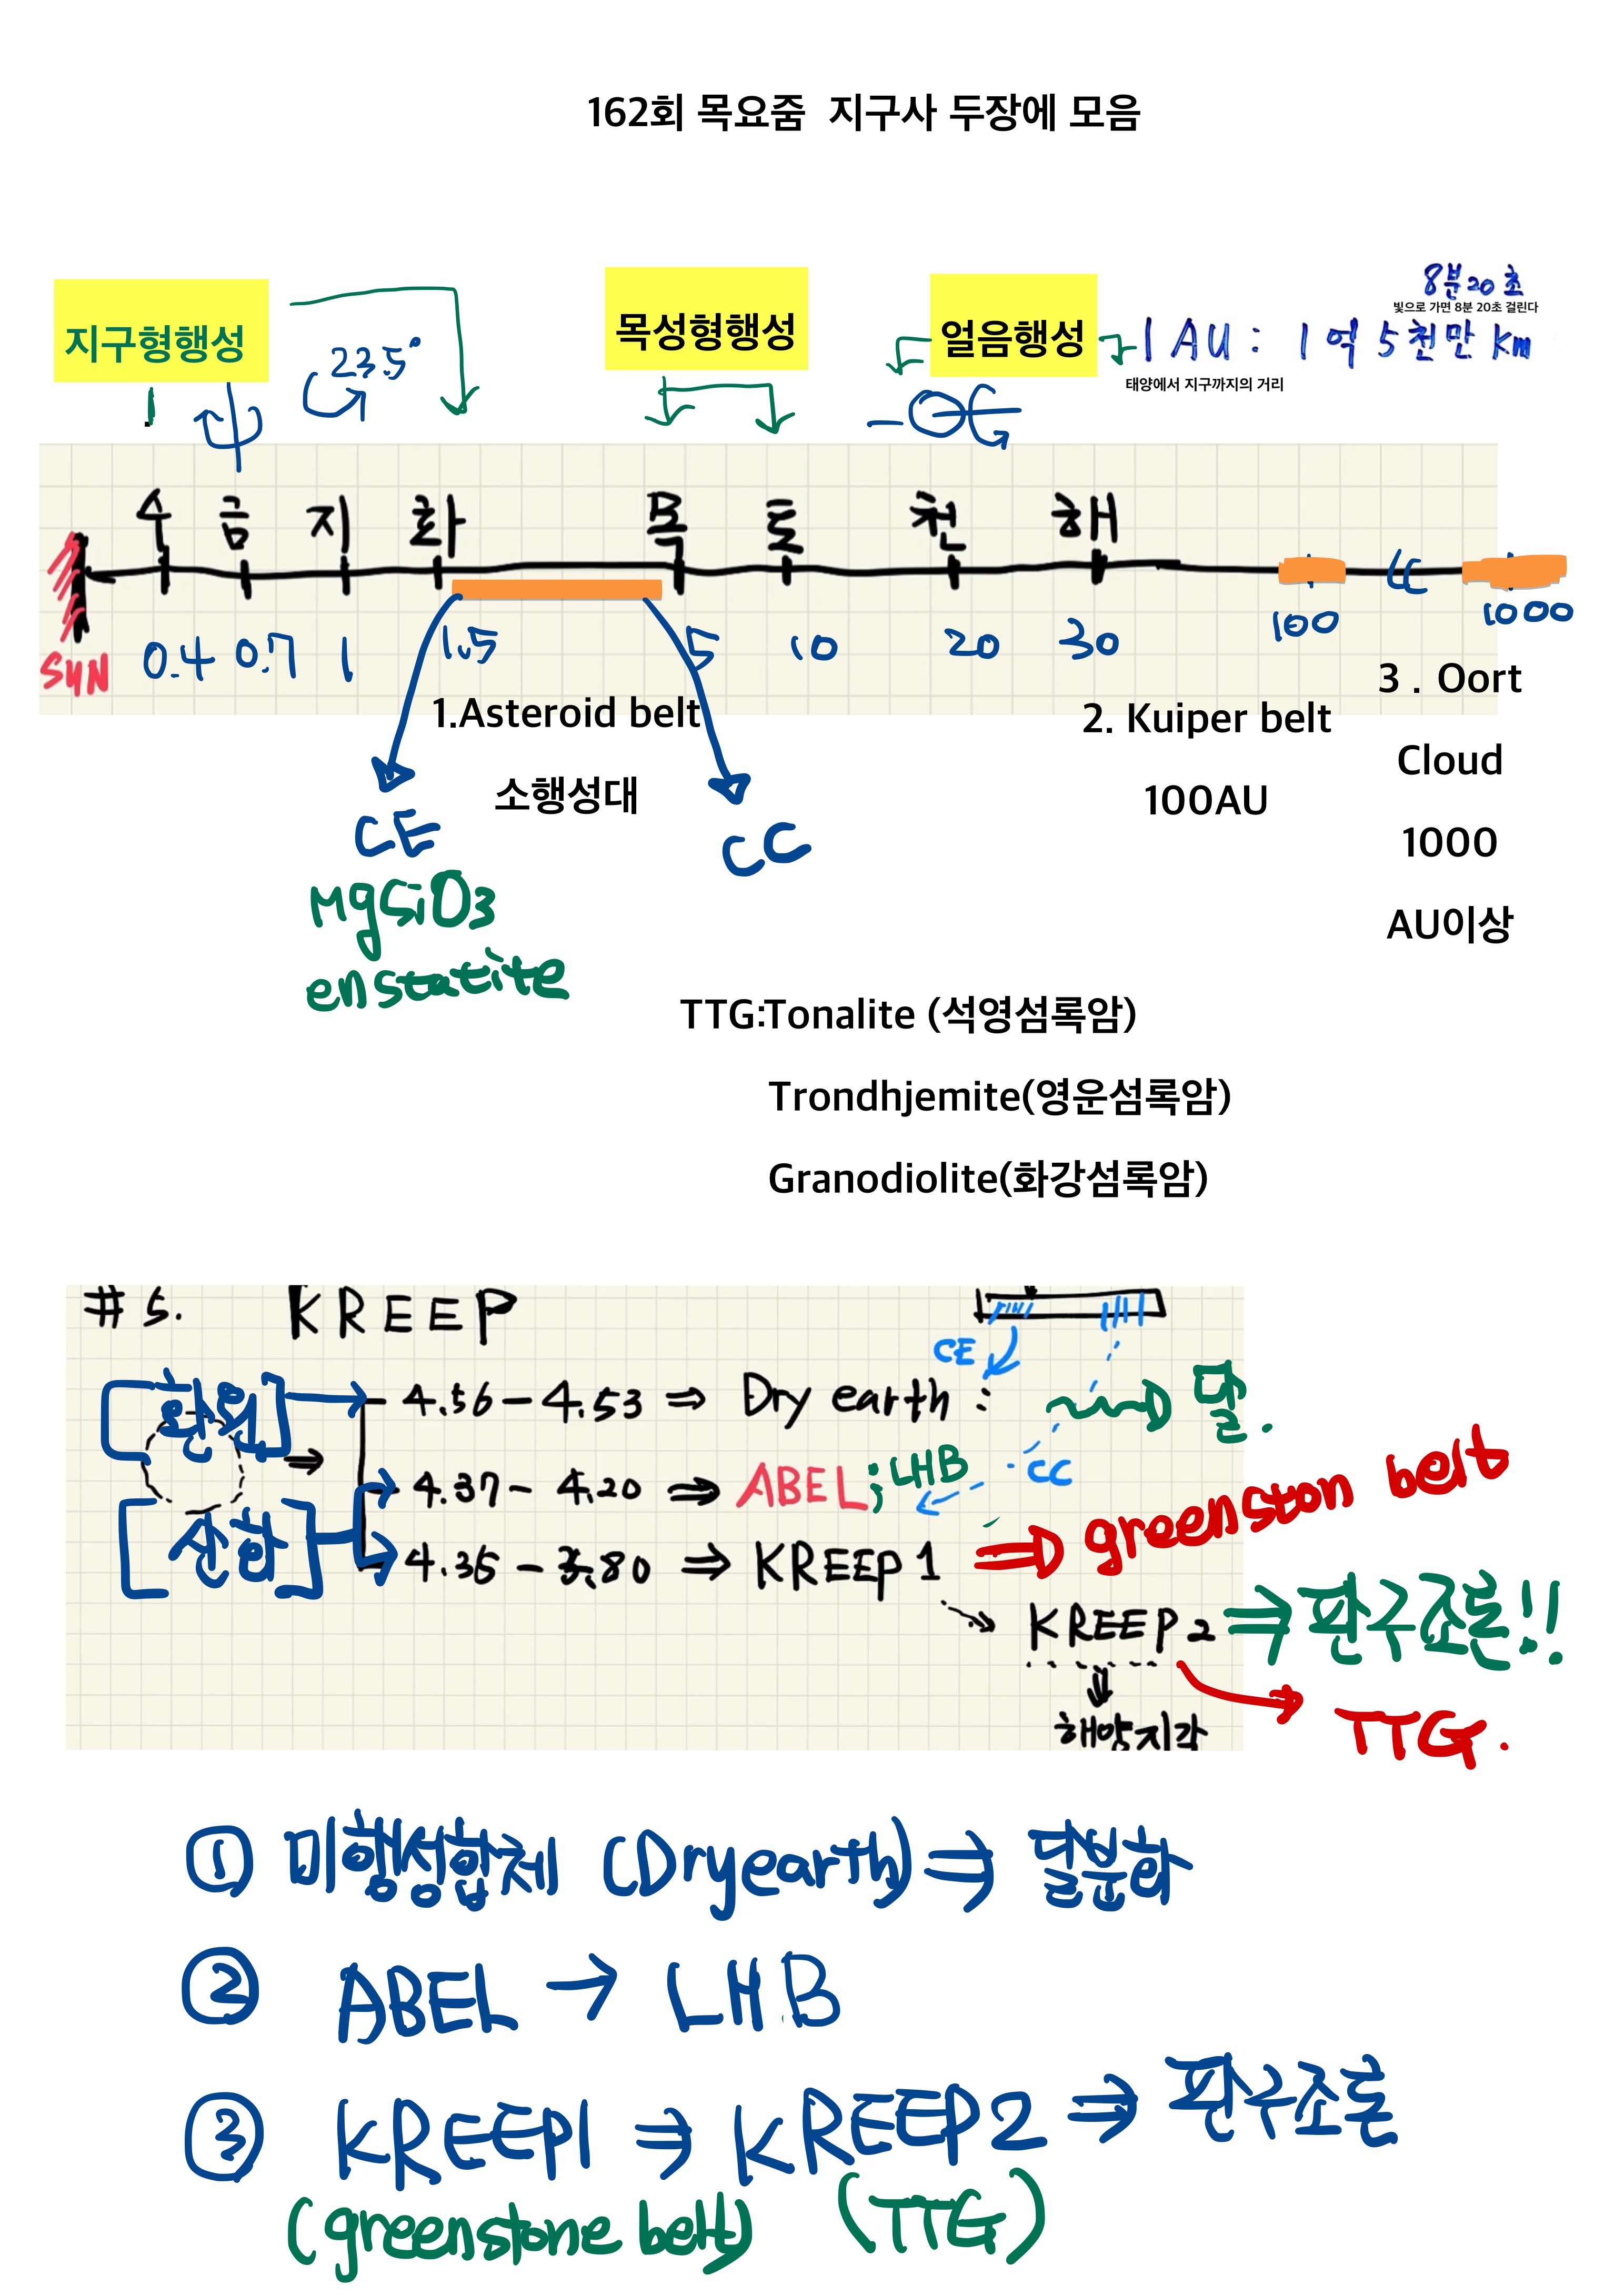 162회 목요줌 지구사 두장에 모음
8분20초
빛으로 가면 8분 20초 걸린다
지구형행성
23.5°
목성형행성
얼음행성
1 AU : 1억 5천만 Km
태양에서 지구까지의 거리
수 금 지 화 목 토 천 해
SUN
0.4 0.7 1 1.5 5 10 20 30 100 1000
1.Asteroid belt
소행성대
2. Kuiper belt
100AU
3 . Oort
Cloud
1000
AU이상
CE
MgSiO3
enstatite
CC
TTG:Tonalite (석영섬록암)
Trondhjemite(영운섬록암)
Granodiolite(화강섬록암)
#5. KREEP
CE
[환원] 4.56-4.53 ⇒ Dry earth : 달.
4.37- 4.20 ⇒ ABEL ; LHB CC
[산화] 4.35 - 3.80 ⇒ KREEP1 ⇒ greenston belt
KREEP2 ⇒ 판구조론!!
해양지각
TTG.
① 미행성합체 (Dryearth) ⇒ 달분화
② ABEL → LHB
③ KREEP1 ⇒ KREEP2 ⇒ 판구조론
(greenstone belt) (TTG)